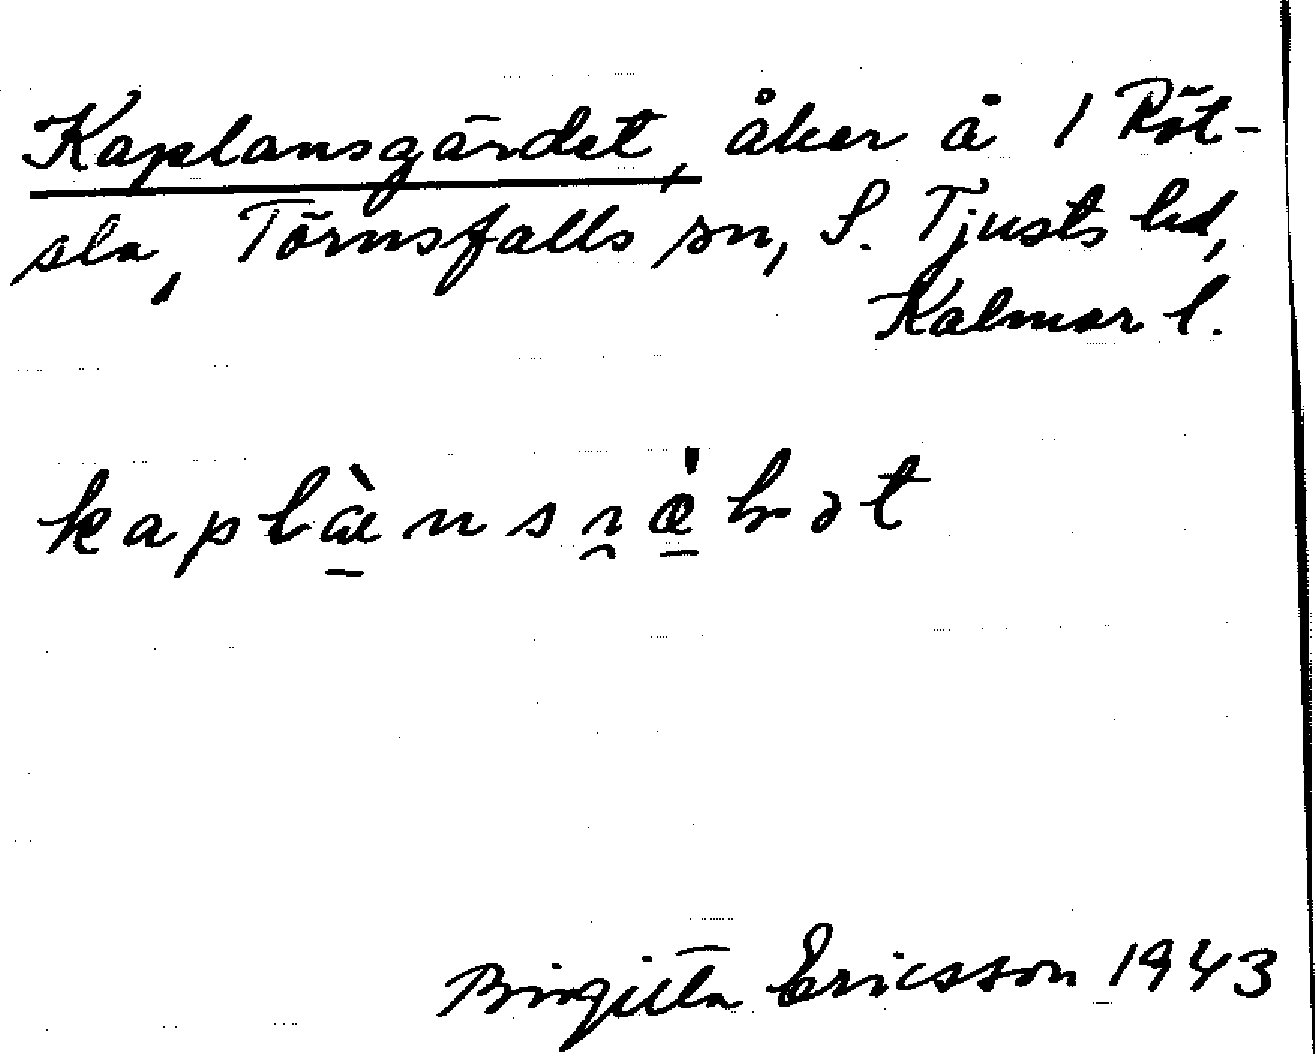 Kaplansgärdet, åker å 1 Röt-
sla, Törnsfalls sn, S. Tjusts hd,
Kalmar l.
Birgitta Ericsson 1943